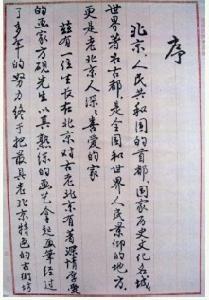 序
北京,人民共和国的首都,国家历史文化名城
世界著名古都,是全国和世界人民景仰的地方,
更是老北京人深喜爱的家
兹有一位生长在北京对古老北京有着深情厚爱
的画家方砚先生以其熟练的画艺拿起画笔经过
了多年的努力终于把最具老北京特色的古街坊